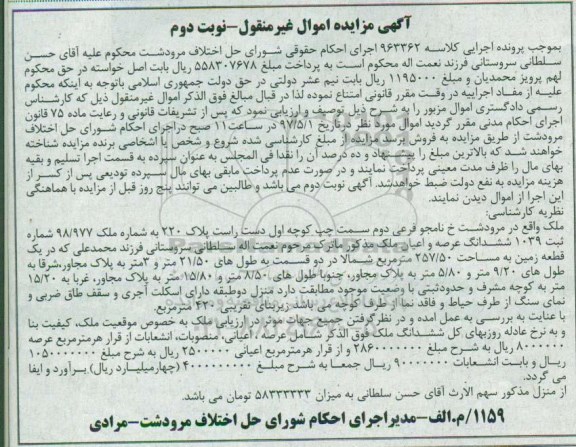 آگهی مزایده اموال غیرمنقول-نوبت دوم
بموجب پرونده اجرایی کلاسه ۹۶۳۳۶۲ اجرای احکام حقوقی شورای حل اختلاف مرودشت محکوم علیه آقای حسن
سلطانی سروستانی فرزند نعمت اله محکوم است به پرداخت مبلغ ۵۵۸۳۰۷۶۷۸ ریال بابت اصل خواسته در حق محکوم
لهم پرویز محمدیان و مبلغ ۱۱۹۵۰۰۰ ریال بابت نیم عشر دولتی در حق دولت جمهوری اسلامی باتوجه به اینکه محکوم
علیه از مفاد اجراییه در وقت مقرر قانونی امتناع نموده لذا در قبال مبالغ فوق الذکر اموال غیرمنقول ذیل که کارشناس
رسمی دادگستری اموال مزبور را به شرح ذیل توصیف و ارزیابی نمود که پس از تشریفات قانونی و رعایت ماده ۷۵ قانون
اجرای احکام مدنی مقرر گردید اموال مورد نظر در تاریخ ۹۷/۵/۱ در ساعت ۱۱ صبح دراجرای احکام شورای حل اختلاف
مرودشت از طریق مزایده به فروش برسد مزایده از مبلغ کارشناسی شده شروع و شخص یا اشخاصی برنده مزایده شناخته
خواهند شد که بالاترین مبلغ را پیشنهاد و ده درصد آن را نقدا فی المجلس به عنوان سپرده به قسمت اجرا تسلیم و بقیه
بهای مال را ظرف مدت معینی پرداخت نمایند و در صورت عدم پرداخت مابقی بهای مال سپرده تودیعی پس از کسر از
هزینه مزایده به نفع دولت ضبط خواهدشد. آگهی نوبت دوم می باشد و طالبین می توانند پنج روز قبل از مزایده با هماهنگی
این اجرا از اموال دیدن نمایند.
نظریه کارشناسی:
ملک واقع در مرودشت خ نامجو فرعی دوم سمت چپ کوچه اول دست راست پلاک ۲۲۰ به شماره ملک ۹۸/۹۷۷ شماره
ثبت ۱۰۳۹ ششدانگ عرصه و اعیان ملک مذکور مالکیت مرحوم نعمت اله سلطانی سروستانی فرزند محمدعلی که در یک
قطعه زمین به مساحت ۲۵۷/۵۰ مترمربع شمالا در دو قسمت به طول های ۲۱/۵۰ متر و ۳متر به پلاک مجاور،شرقا به
طول های ۹/۲۰ متر و ۵/۸۰ متر به پلاک مجاور، جنوبا طول های ۸/۵۰ متر و ۱۵/۸۰متر به پلاک مجاور، غربا به ۱۵/۲۰
متر به کوچه مشرف و حدودثبتی با وضعیت موجود مطابقت دارد منزل دوطبقه دارای اسکلت آجری و سقف طاق ضربی و
نمای سنگ از طرف حیاط و فاقد نما از سمت کوچه می باشد زیربنای تقریبی ۴۲۰ مترمربع.
با عنایت به بررسی به عمل امده و در نظرگرفتن جمیع جهات موثر در ارزیابی ملک به خصوص موقعیت ملک، کیفیت بنا
و به نرخ عادله روزبهای کل ششدانگ ملک فوق الذکر شامل عرصه، اعیانی، منصوبات، انشعابات از قرار هرمترمربع عرصه
۸۰۰۰۰۰۰ ریال به شرح مبلغ ۲۸۶۰۰۰۰۰۰۰ و از قرار هرمترمربع اعیانی ۲۵۰۰۰۰۰ ریال به شرح مبلغ ۱۰۵۰۰۰۰۰۰۰
ریال و بابت انشعابات ۹۰۰۰۰۰۰۰ ریال جمعا به شرح مبلغ ۴۰۰۰۰۰۰۰۰۰ (چهارمیلیارد ریال) برآورد و ایفا
می گردد.
از منزل مذکور سهم الارث آقای حسن سلطانی به میزان ۵۸۳۳۳۳۳۳ تومان می باشد.
۱۱۵۹/م.الف-مدیراجرای احکام شورای حل اختلاف مرودشت-مرادی